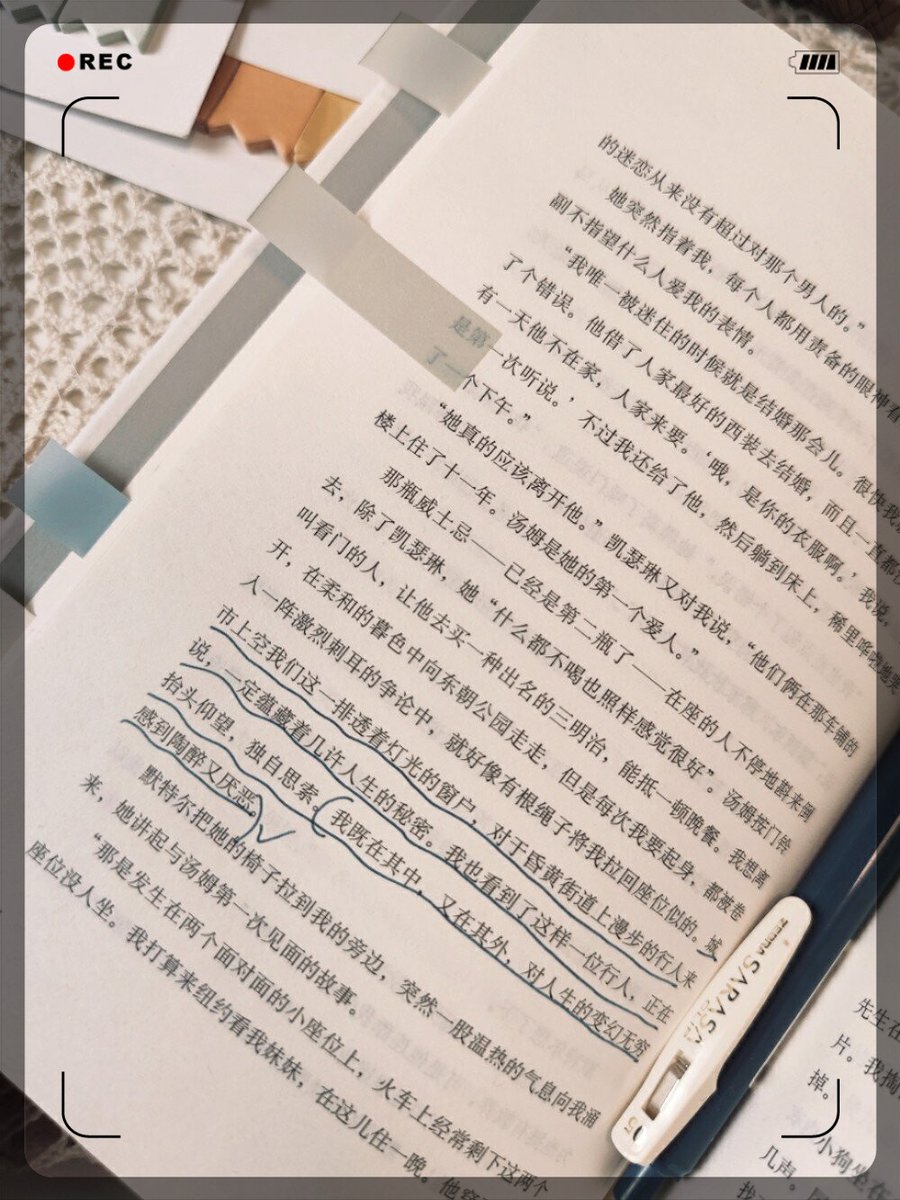 REC
的迷恋从来没有超过对那个男人的。”
她突然指着我，每个人都用责备的眼神看
副不指望什么人爱我的表情。
“我唯一被迷住的时候就是结婚那会儿。很快我
了个错误。他借了人家最好的西装去结婚，而且一直都
有一天他不在家，人家来要。‘哦，是你的衣服啊。’我说，
是第一次听说。’不过我还给了他，然后躺到床上，稀里哗啦地哭
了一个下午。”
“她真的应该离开他。”凯瑟琳又对我说，“他们俩在那车铺的
楼上住了十一年。汤姆是她的第一个爱人。”
那瓶威士忌——已经是第二瓶了——在座的人不停地斟来斟
去，除了凯瑟琳，她“什么都不喝也照样感觉很好”。汤姆按门铃
叫看门的人，让他去买一种出名的三明治，能抵一顿晚餐。我想离
开，在柔和的暮色中向东朝公园走走，但是每次我要起身，都被卷
入一阵激烈刺耳的争论中，就好像有根绳子将我拉回座位似的。城
市上空我们这一排透着灯光的窗户，对于昏黄街道上漫步的行人来
说，一定蕴藏着几许人生的秘密。我也看到了这样一位行人，正在
抬头仰望，独自思索。我既在其中，又在其外，对人生的变幻无穷
感到陶醉又厌恶。
默特尔把她的椅子拉到我的旁边，突然一股温热的气息向我涌
来，她讲起与汤姆第一次见面的故事。
“那是发生在两个面对面的小座位上，火车上经常剩下这两个
座位没人坐。我打算来纽约看我妹妹，在这儿住一晚。他穿
ZEBRA SARASA
先生在
片。我掏
掉。
小狗坐在
几声。